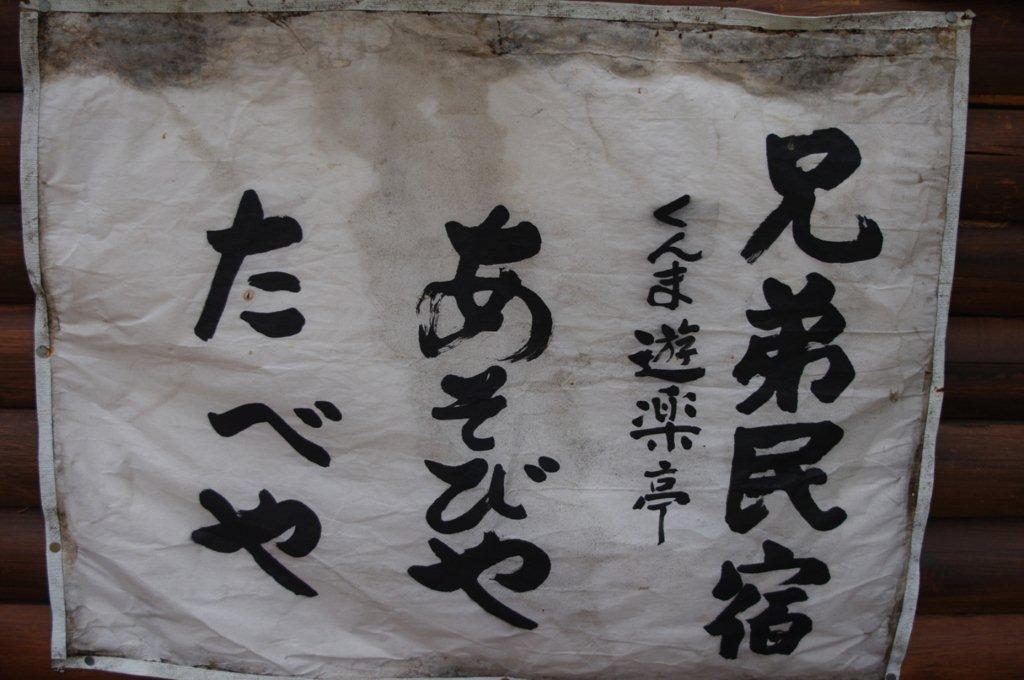 兄弟民宿
くんま遊楽亭
あそびや
たべや